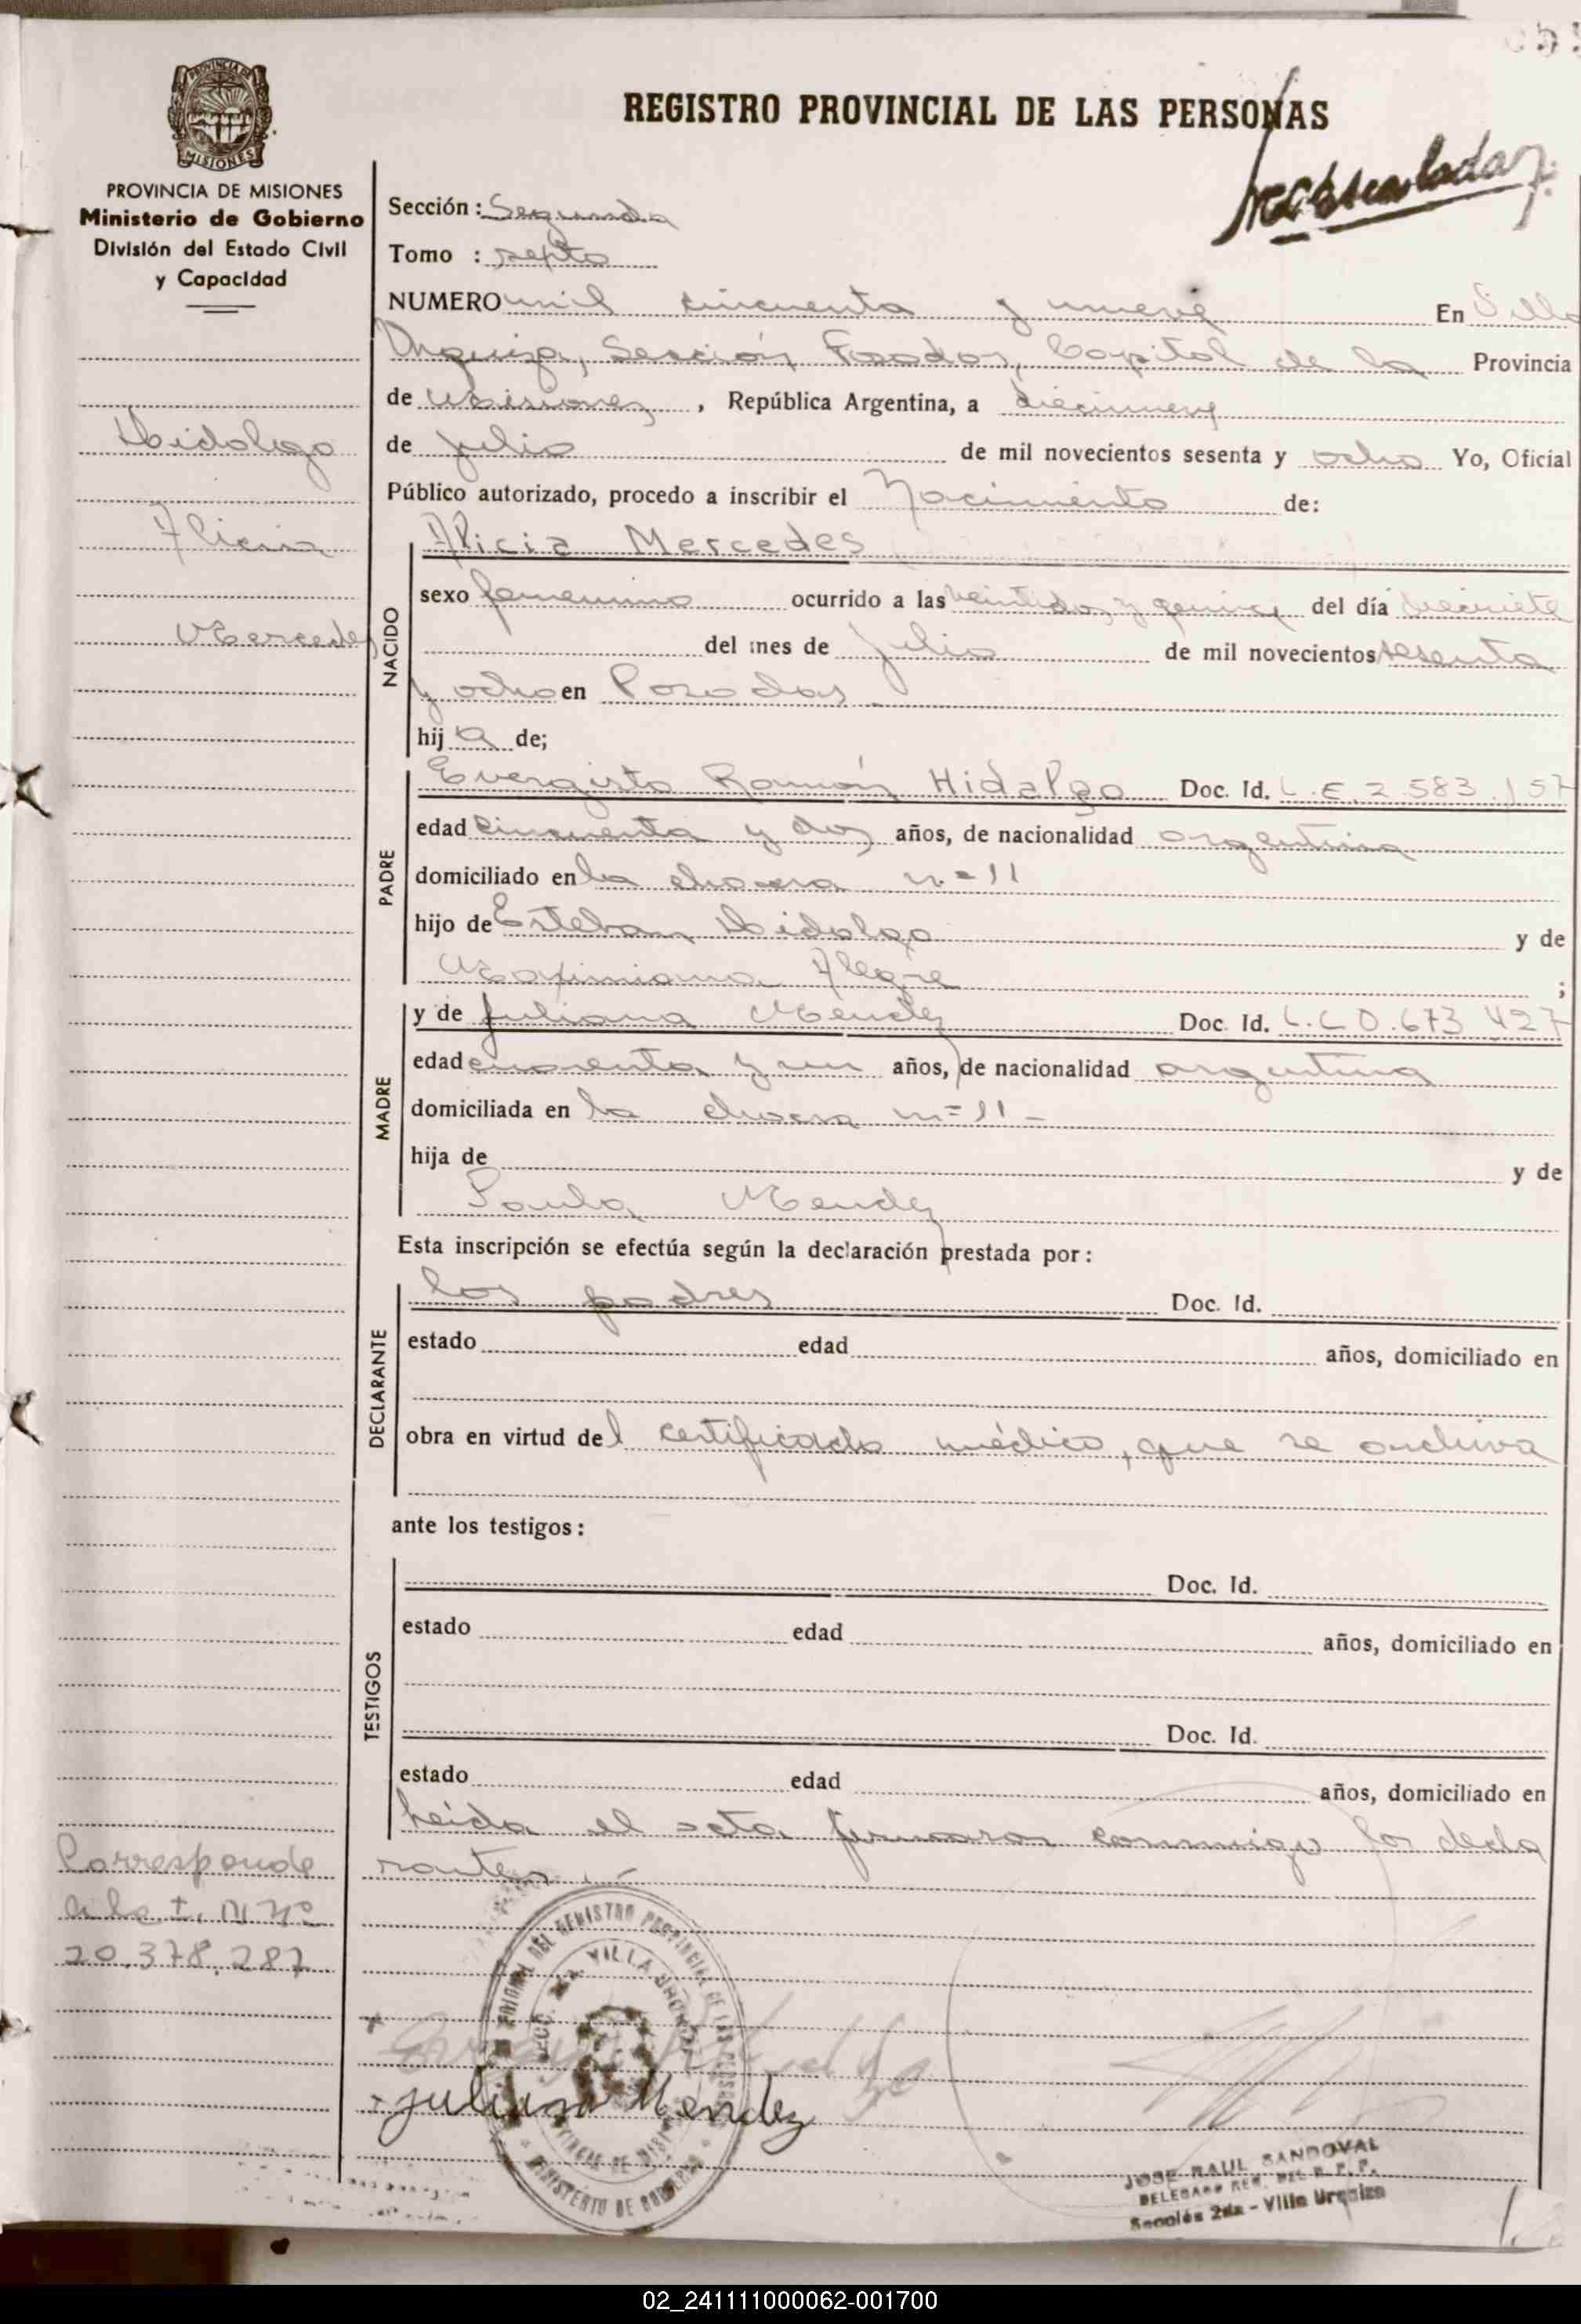 REGISTRO PROVINCIAL DE LAS PERSONAS
PROVINCIA DE MISIONES
Ministerio de Gobierno
División del Estado Civil
y Capacidad
Sección: Segunda
Tomo :
NUMERO mil cincuenta y nueve En Villa
Urquiza, Sección Posadas, Capital de la Provincia
de Misiones, República Argentina, a diecinueve
Hidalgo
de julio de mil novecientos sesenta y ocho Yo, Oficial
Público autorizado, procedo a inscribir el Nacimiento de:
Alicia
Alicia Mercedes
NACIDO
sexo femenino ocurrido a las veintidos y quince del día diecisiete
Mercedes
del mes de julio de mil novecientos sesenta
y ocho en Posadas
hija de;
PADRE
Evergisto Ramón Hidalgo Doc. Id. L.E. 2.583.157
edad cincuenta y dos años, de nacionalidad argentina
domiciliado en la chacra n=11
hijo de Esteban Hidalgo y de
Maximiana Alegre ;
MADRE
y de Juliana Mendez Doc. Id. L.C 0.673.427
edad cuarenta y un años, de nacionalidad argentina
domiciliada en la chacra n=11-
hija de y de
Paula Mendez
Esta inscripción se efectúa según la declaración prestada por:
DECLARANTE
los padres Doc. Id.
estado edad años, domiciliado en
obra en virtud del certificado médico, que se archiva
ante los testigos:
TESTIGOS
Doc. Id.
estado edad años, domiciliado en
Doc. Id.
estado edad años, domiciliado en
Leída el acta firmaron conmigo los decla
rantes.-
Corresponde
20.378.287
Juliana Mendez
JOSE RAUL SANDOVAL
Sección 2da - Villa Urquiza
02_241111000062-001700